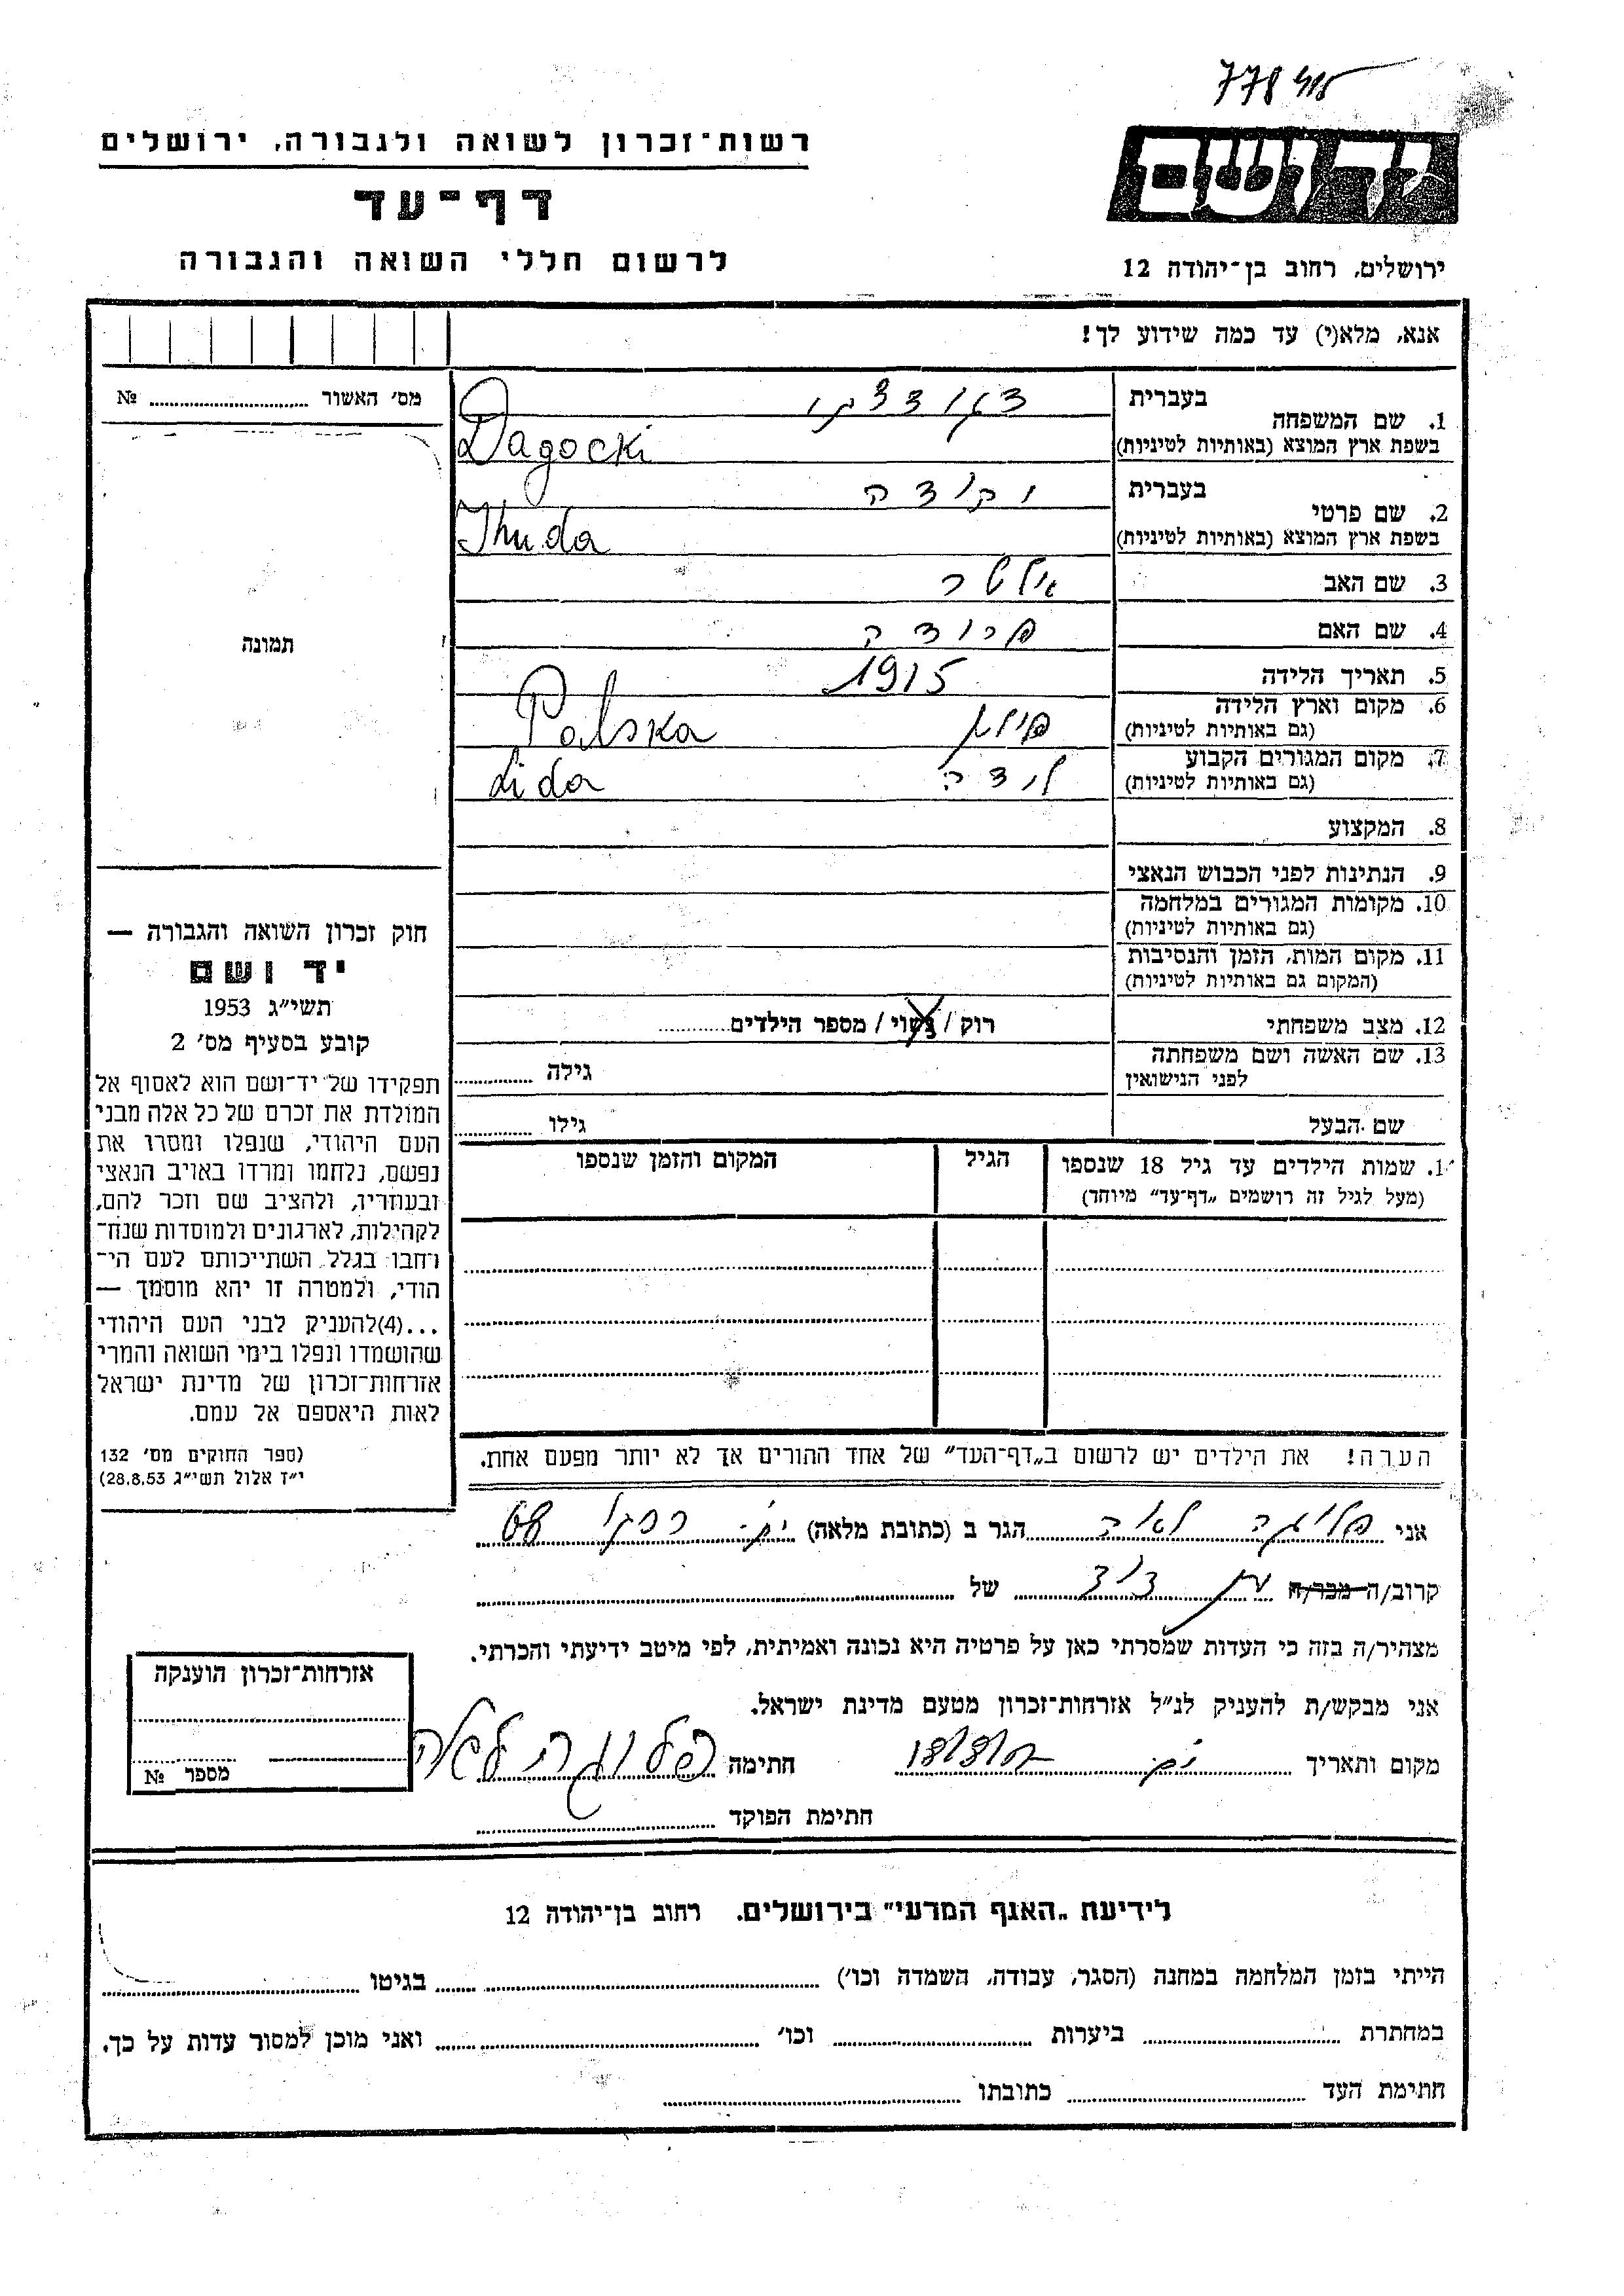 778
רשות־זכרון לשואה ולגבורה, ירושלים
דף־עד
לרשום חללי השואה והגבורה
יד ושם
ירושלים, רחוב בן־יהודה 12
אנא, מלא(י) עד כמה שידוע לך!
מס׳ האשור № 
תמונה
1. שם המשפחה
בעברית
בשפת ארץ המוצא (באותיות לטיניות) Dagocki
2. שם פרטי
בעברית
בשפת ארץ המוצא (באותיות לטיניות) Ihuda
3. שם האב אלטר
4. שם האם פרודה
5. תאריך הלידה 1915
6. מקום וארץ הלידה
(גם באותיות לטיניות) פולין Polska
7. מקום המגורים הקבוע
(גם באותיות לטיניות) לידה Lida
8. המקצוע
9. הנתינות לפני הכבוש הנאצי
10. מקומות המגורים במלחמה
(גם באותיות לטיניות)
11. מקום המות, הזמן והנסיבות
(המקום גם באותיות לטיניות)
12. מצב משפחתי רוק / נשוי / מספר הילדים
13. שם האשה ושם משפחתה
לפני הנישואין גילה
שם הבעל גילו
1. שמות הילדים עד גיל 18 שנספו הגיל המקום והזמן שנספו
(מעל לגיל זה רושמים „דף־עד״ מיוחד)
הערה! את הילדים יש לרשום ב„דף־העד״ של אחד ההורים אך לא יותר מפעם אחת.
חוק זכרון השואה והגבורה —
יד ושם
תשי״ג 1953
קובע בסעיף מס׳ 2
תפקידו של יד־ושם הוא לאסוף אל
המולדת את זכרם של כל אלה מבני
העם היהודי, שנפלו ומסרו את
נפשם, נלחמו ומרדו באויב הנאצי
ובעוזריו, ולהציב שם וזכר להם,
לקהילות, לארגונים ולמוסדות שנח־
רחבו בגלל השתייכותם לעם הי־
הודי, ולמטרה זו יהא מוסמך —
...(4)להעניק לבני העם היהודי
שהושמדו ונפלו בימי השואה והמרי
אזרחות־זכרון של מדינת ישראל
לאות היאספם אל עמם.
(ספר החוקים מס׳ 132
י״ז אלול תשי״ג 28.8.53)
אני לאה הגר ב (כתובת מלאה) 68
קרוב/ה מכר/ה בן דוד של
מצהיר/ה בזה כי העדות שמסרתי כאן על פרטיה היא נכונה ואמיתית, לפי מיטב ידיעתי והכרתי.
אני מבקש/ת להעניק לנ״ל אזרחות־זכרון מטעם מדינת ישראל.
מקום ותאריך חתימה לאה
חתימת הפוקד
אזרחות־זכרון הוענקה
מספר №
לידיעת „האגף המדעי״ בירושלים, רחוב בן־יהודה 12
הייתי בזמן המלחמה במחנה (הסגר, עבודה, השמדה וכו׳) בגיטו
במחתרת ביערות וכו׳ ואני מוכן למסור עדות על כך.
חתימת העד כתובתו